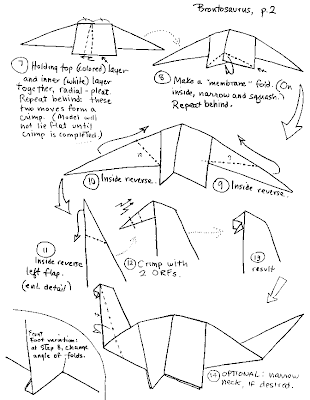 Brontosaurus, p.2
7 Holding top (colored) layer
and inner (white) layer
Together, radial-pleat.
Repeat behind; these
two moves form a
crimp. (Model will
not lie flat until
crimp is completed.)
8 Make a "membrane" fold. (On
inside, narrow and squash.)
Repeat behind.
10 Inside reverse.
9 Inside reverse.
11
Inside reverse
left flap.
(enl. detail)
12 Crimp with
2 ORFs.
13
result
Front
Foot variation:
at Step 8, change
angle of folds.
14 OPTIONAL: narrow
neck, if desired.